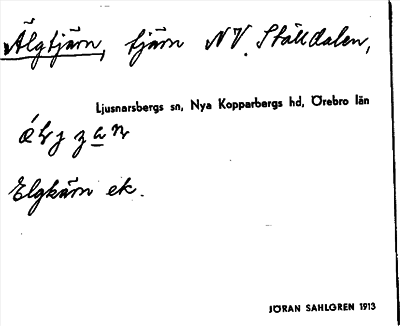 Älgtjärn, tjärn NV. Ställdalen,
Ljusnarsbergs sn, Nya Kopparbergs hd, Örebro län
Elgkärn ek.
JÖRAN SAHLGREN 1913